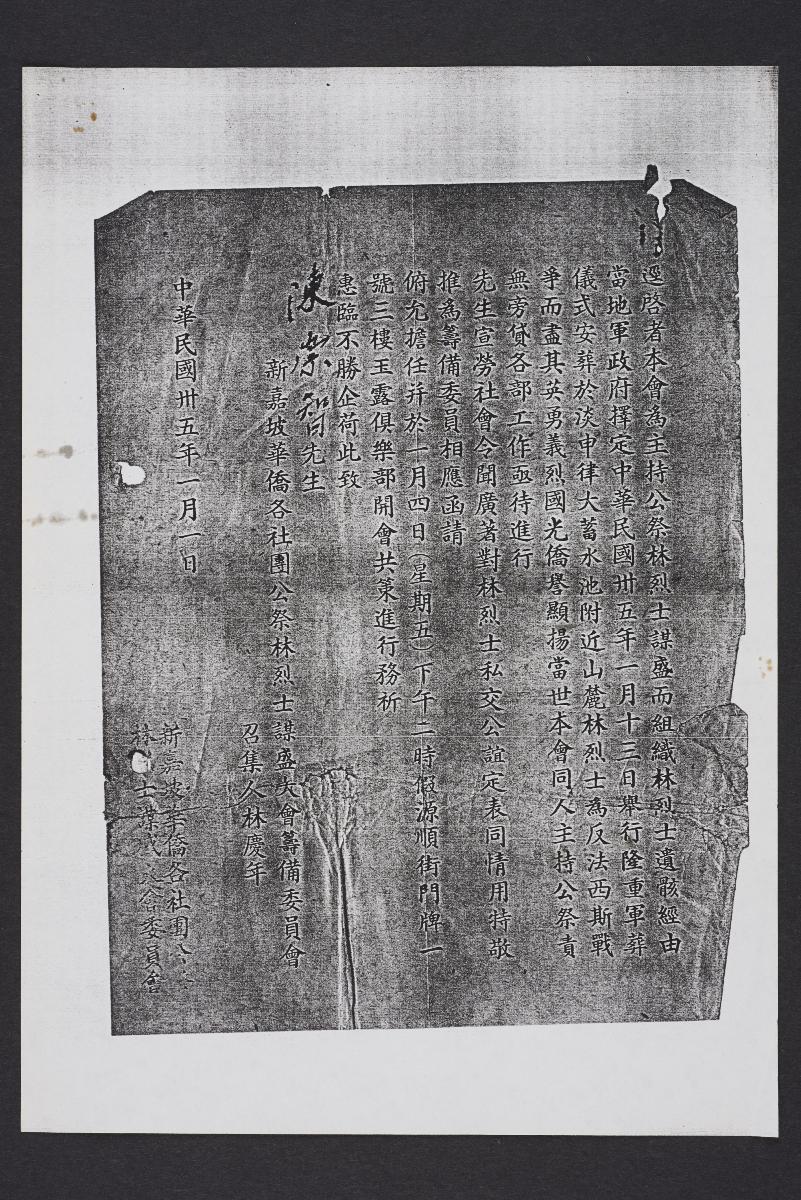 逕啓者本會為主持公祭林烈士謀盛而組織林烈士遺骸經由
當地軍政府擇定中華民國卅五年一月十三日舉行隆重軍葬
儀式安葬於淡申律大蓄水池附近山麓林烈士為反法西斯戰
爭而盡其英勇義烈國光僑譽顯揚當世本會同人主持公祭責
無旁貸各部工作亟待進行
先生宣勞社會令聞廣著對林烈士私交公誼定表同情用特敬
推為籌備委員相應函請
俯允擔任并於一月四日（星期五）下午二時假源順街門牌一
號三樓玉露俱樂部開會共策進行務祈
惠臨不勝企荷此致
陳崇智先生
新嘉坡華僑各社團公祭林烈士謀盛大會籌備委員會
召集人林慶年
中華民國卅五年一月一日
新嘉坡華僑各社團公
士謀盛 會委員會